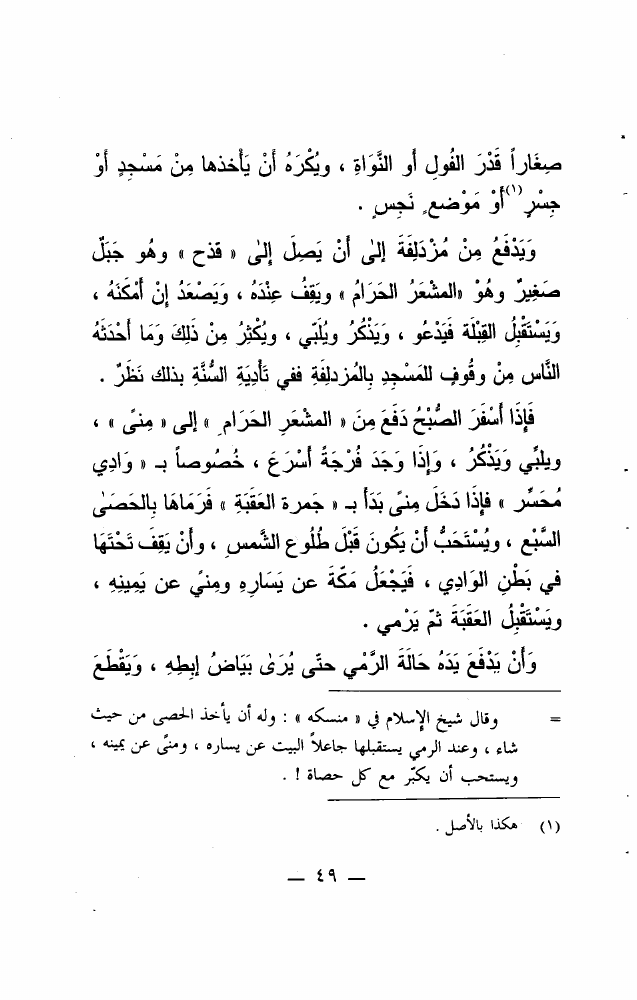 صِغَاراً قَدْرَ الفُولِ أو النَّوَاةِ ، ويُكْرَهُ أنْ يَأْخذها مِنْ مَسْجِدٍ أوْ
جِسْرٍ(١) أوْ مَوْضعٍ نَجِسٍ .
وَيَدْفَعُ مِنْ مُزْدَلِفَةَ إلىٰ أنْ يَصِلَ إِلىٰ « قذح » وهُو جَبَلٌ
صَغِيرٌ وهُوْ «المشْعَرُ الحَرَامُ » ويَقِفُ عِنْدَهُ ، وَيَصْعَدُ إنْ أَمْكَنَهُ ،
وَيَسْتَقْبِلُ القِبْلَة فَيَدْعُو ، وَيَذْكُرُ ويُلَبّي ، ويُكْثِرُ مِنْ ذَلِكَ وَمَا أَحْدَثَهُ
النَّاس مِنْ وقُوفٍ للمَسْجِدِ بِالمُزدلِفَةِ ففي تَأْدِيَةِ السُّنَّةِ بذلك نَظَرٌ .
فَإِذَا أَسْفَرَ الصُّبْحُ دَفَعَ مِنَ « المشْعَرِ الحَرَامِ » إلى « مِنىً » ،
ويلبِّي وَيَذْكُرُ ، وَإذَا وَجَدَ فُرْجَةً أَسْرَعَ ، خُصُوصاً بـ « وَادِي
مُحَسِّر » فإذَا دَخَلَ مِنىً بَدَأَ بـ « جَمرة العَقَبَةِ » فَرَمَاهَا بِالحَصَىٰ
السَّبْع ، ويُسْتَحَبُّ أنْ يَكُونَ قَبْلَ طُلُوع الشَّمسِ ، وأنْ يَقِفَ تَحْتَهَا
في بَطْنِ الوَادِي ، فَيَجْعَلُ مَكّةَ عن يَسَارِهِ ومِنىً عن يَمِينِهِ ،
ويَسْتَقْبِلُ العَقَبَةَ ثمّ يَرْمي .
وَأنْ يَدْفَعَ يَدَهُ حَالَةَ الرَّمْي حتّى يُرَىٰ بَيَاضُ إبطِهِ ، وَيَقْطَعَ
= وقال شيخ الإسلام في « منسكه » : وله أن يأخذ الحصى من حيث
شاء ، وعند الرمي يستقبلها جاعلاً البيت عن يساره ، ومنىً عن يمينه ،
ويستحب أن يكبّر مع كل حصاة ! .
(١) هكذا بالأصل .
— ٤٩ —